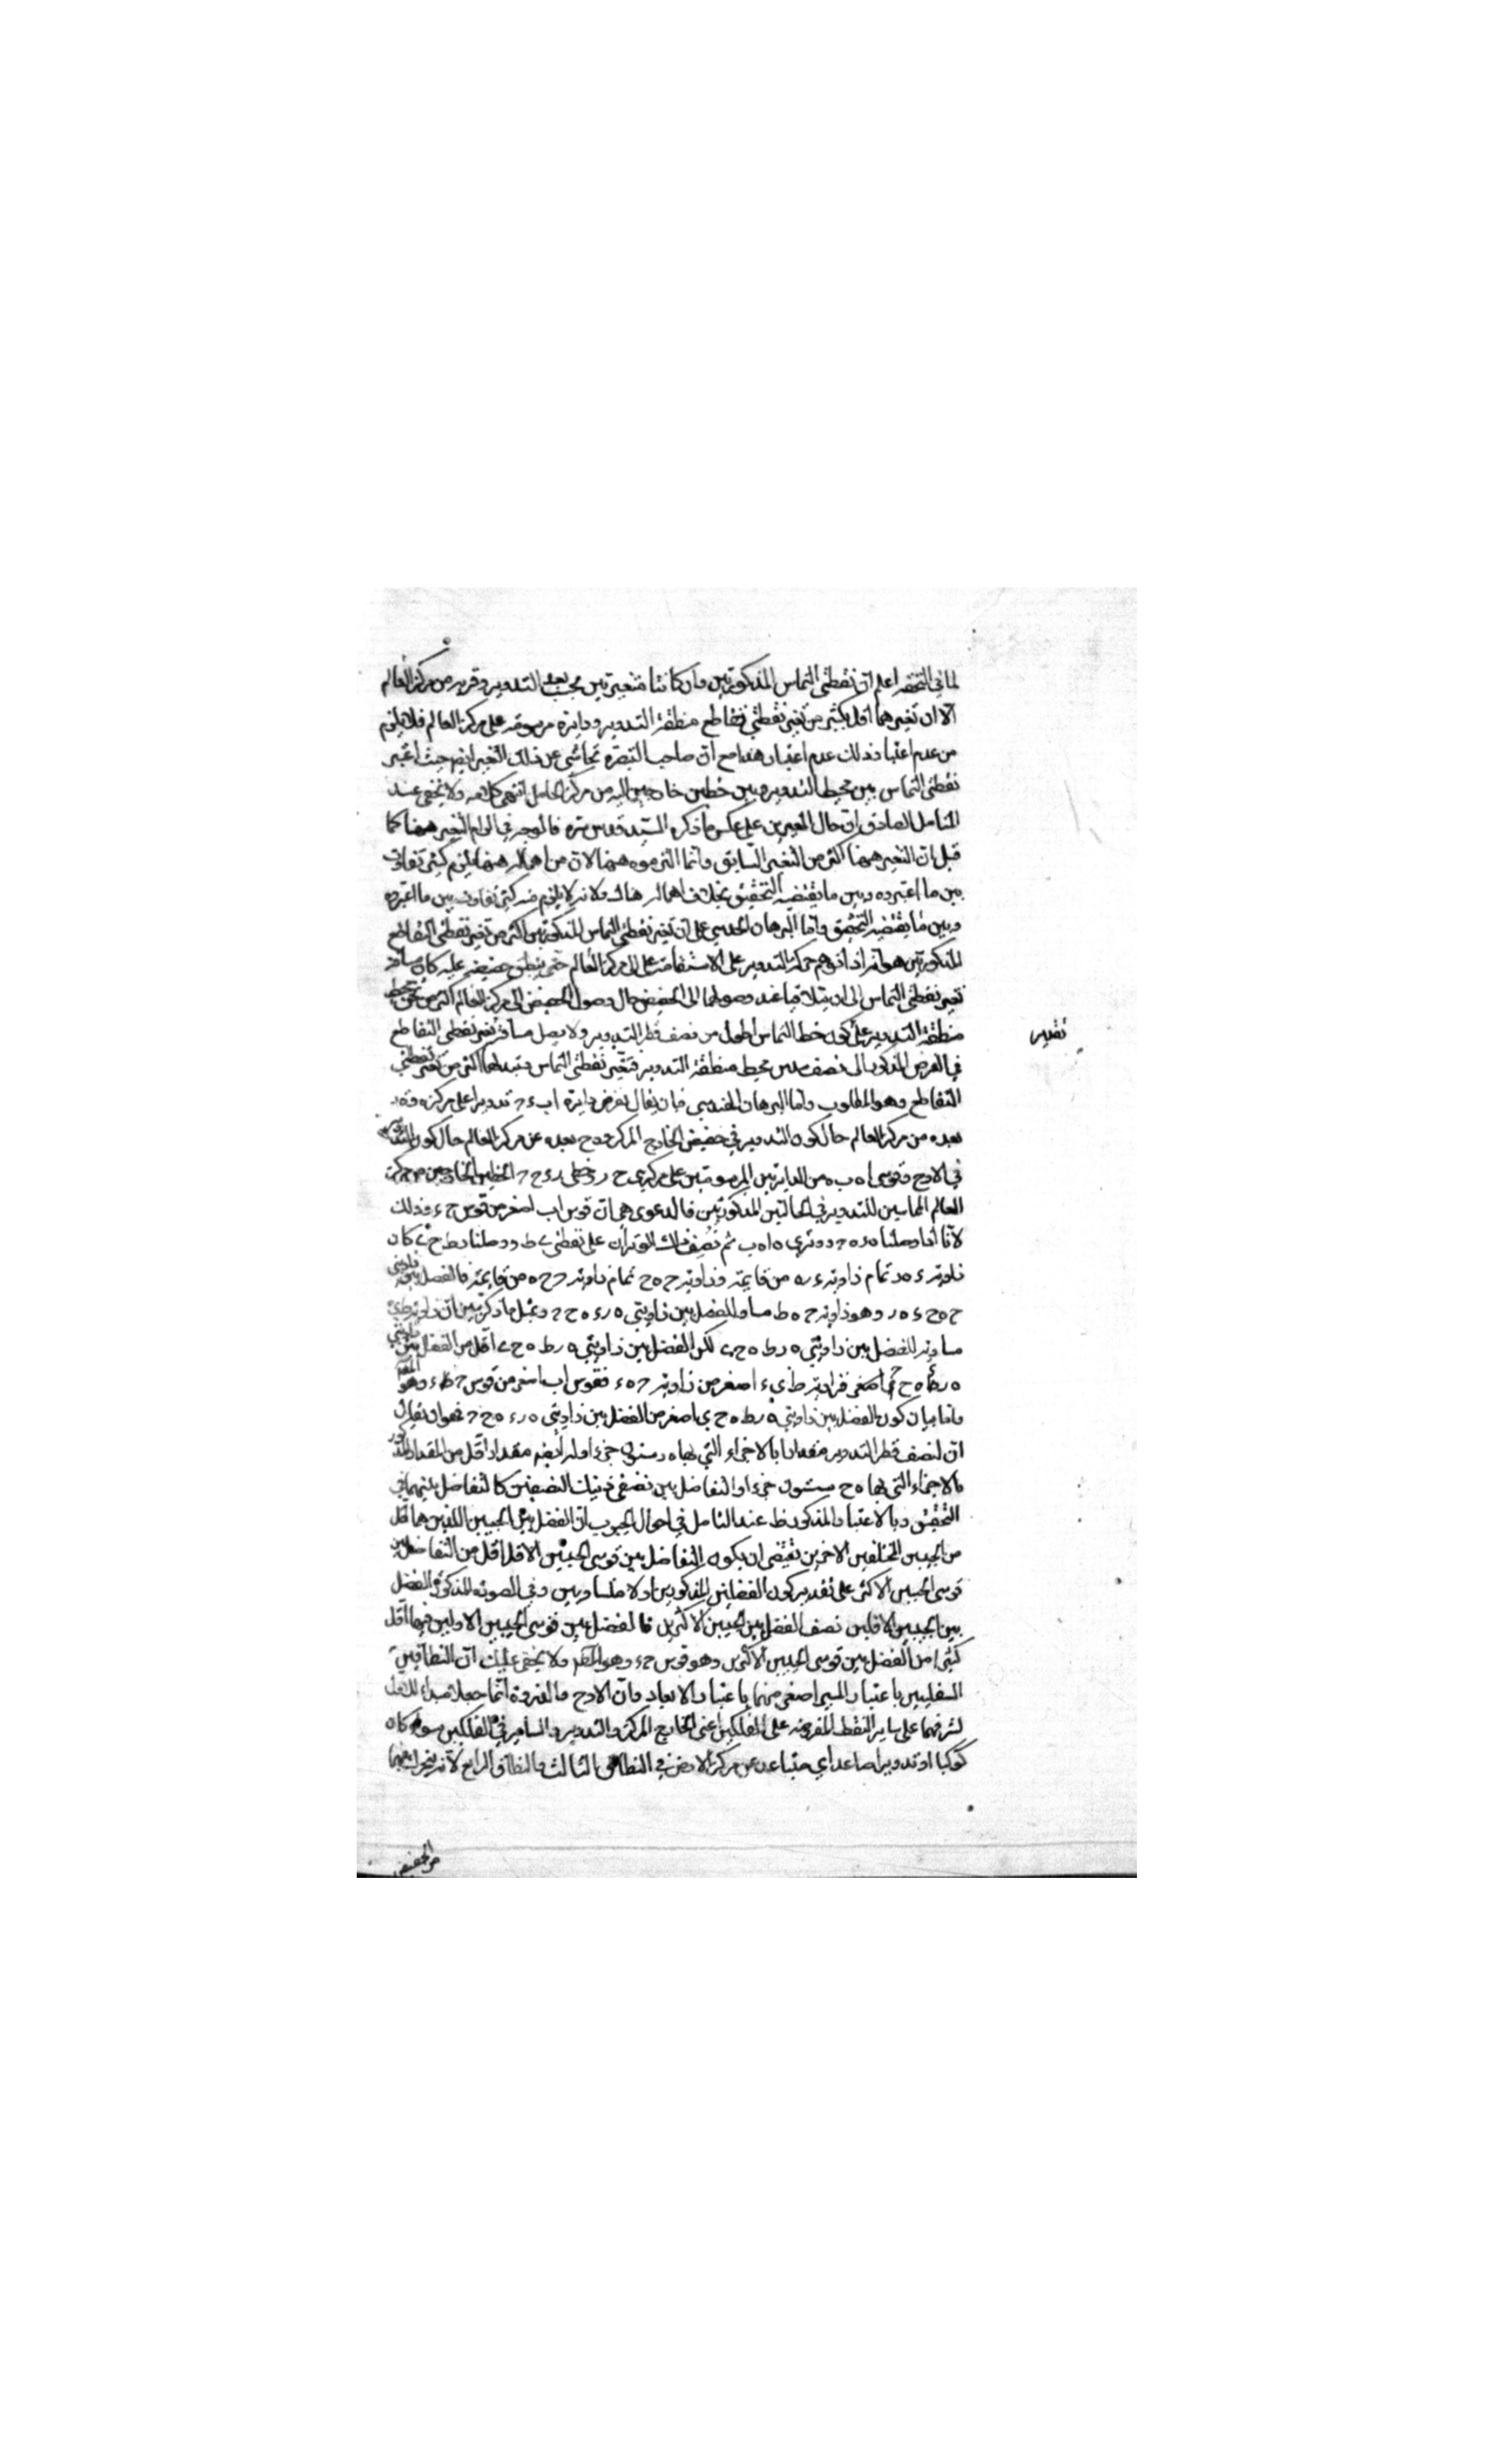 لما في التحفة اعلم ان نقطتي التماس المذكورتين وان كانتا متغيرتين بحسب بعد التدوير وقربه من مركز العالم
الا ان تغيرهما اقل بكثير من تغير نقطتي تقاطع منطقة التدوير ودايرة مرسومة على مركز العالم فلا يلزم
من عدم اعتبار ذلك عدم اعتبار هذا مع ان صاحب التبصرة تحاشى عن ذلك التغير ايضا حيث اعتبر
نقطتي التماس بين محيط التدوير وبين خطين خارجين اليه من مركز الحامل انتهى كلامه ولا يخفى عند
المتامل الصادق ان حال التغيرين على عكس ما ذكره السيد قدس سره فالوجه في الزام التغير ههنا كما
قيل ان التغير ههنا اكثر من التغير السابق وانما التزموه ههنا لان من اهماله ههنا يلزم كثير تفاوت
بين ما اعتبروه وبين ما يقتضيه التحقيق بخلاف اهماله هناك فلانه لا يلزم منه كثير تفاوت بين ما اعتبروه
وبين ما يقتضيه التحقيق واما البرهان الحدسي على ان تغير نقطتي التماس المذكورتين اكثر من تغير نقطتي التقاطع
المذكورتين هو انه اذا توهم حركة التدوير على الاستقامة الى مركز العالم حتى ينطبق حضيضه عليه كان مسافة
تغير نقطتي التماس الى ان يتلاقيا عند وصولهما الى الحضيض حال وصول الحضيض الى مركز العالم اكثر من
منطقة التدوير على كون خط التماس اطول من نصف قطر التدوير ولا يصل مسافة تغير نقطتي التقاطع
تقدير
في الفرض المذكور الى نصف سدس محيط منطقة التدوير فتغير نقطتي التماس وتبدلهما اكثر من تغير نقطتي
التقاطع وهو المطلوب واما البرهان الهندسي فبان يقال نفرض دايرة ا ب ء ح تدويرا على مركز ه و ه ر
بعده من مركز العالم حال كون التدوير في حضيض الخارج المركز و ه ح بعده عن مركز العالم حال كون التدوير
في الاوج وقوسي ا ه ب ه من الدايرتين المرسومتين على مركزي ح ر وخطي ر ء ح ح الخطين الخارجين من مركز
العالم المماسين للتدوير في الحالتين المذكورتين فالدعوى هي ان قوس ا ب اصغر من قوس ح ء وذلك
لانا اذا وصلنا ه ء ه ح ووتري ه ا ه ب ثم نصف ذلك الوتران على نقطتي ى ط ووصلنا ر ط ح ى كان
زاوية ء ه ر تمام زاوية ء ر ه من قايمة وزاوية ح ه ح تمام زاوية ح ح ه من قايمة فالفضل بين زاويتي
ح ه ح ء ه ر وهو زاوية ح ه ط مساو للفضل بين زاويتي ه ر ء ه ح ح وبمثل ما ذكر يتبين ان زاوية ط ه ى
مساوية للفضل بين زاويتي ه ر ط ه ح ى لكن الفضل بين زاويتي ه ر ط ه ح ى اقل من الفضل بين زاويتي
ه ر ء ه ح ح فزاوية ط ه ى اصغر من زاوية ح ه ء فقوس ا ب اصغر من قوس ح ء وهو المط
واما بيان كون الفضل بين زاويتي ه ر ط ه ح ى اصغر من الفضل بين زاويتي ه ر ء ه ح ح فهو ان يقال
ان لنصف قطر التدوير مقدارا بالاجزاء التي بها ه ر ستون جزءا وله ايضا مقدارا اقل من المقدار المذكور
بالاجزاء التي بها ه ح ستون جزءا والتفاضل بين نصفي ذينك النصفين كالتفاضل بينهما في
التحقيق وبالاعتبار المذكور ظ عند التامل في احوال الجيوب ان الفضل بين الجيبين اللذين هما اقل
من الجيبين المختلفين الاخرين يقتضي ان يكون التفاضل بين قوسي الجيبين الاقل اقل من التفاضل بين
قوسي الجيبين الاكثر على تقدير كون الفضلين المذكورين اولا متساويين وفي الصورة المذكورة الفضل
بين الجيبين الاقلين نصف الفضل بين الجيبين الاكثرين فالفضل بين قوسي الجيبين الاولين فيها اقل
كثيرا من الفضل بين قوسي الجيبين الاكثرين وهو قوس ح ء وهو المط ولا يخفى عليك ان النطاقين
السفليين باعتبار المسير اصغر منهما باعتبار الابعاد وان الاوج والذروة انما جعلا مبداء للاول
لشرفهما على ساير النقط المفروضة على الفلكين اعني الخارج المركز والتدوير والساير في الفلكين سواء كان
كوكبا او تدويرا صاعدا اي متباعدا عن مركز الارض في النطاق الثالث والنطاق الرابع لانه يتحرك فيهما
من الحضيض